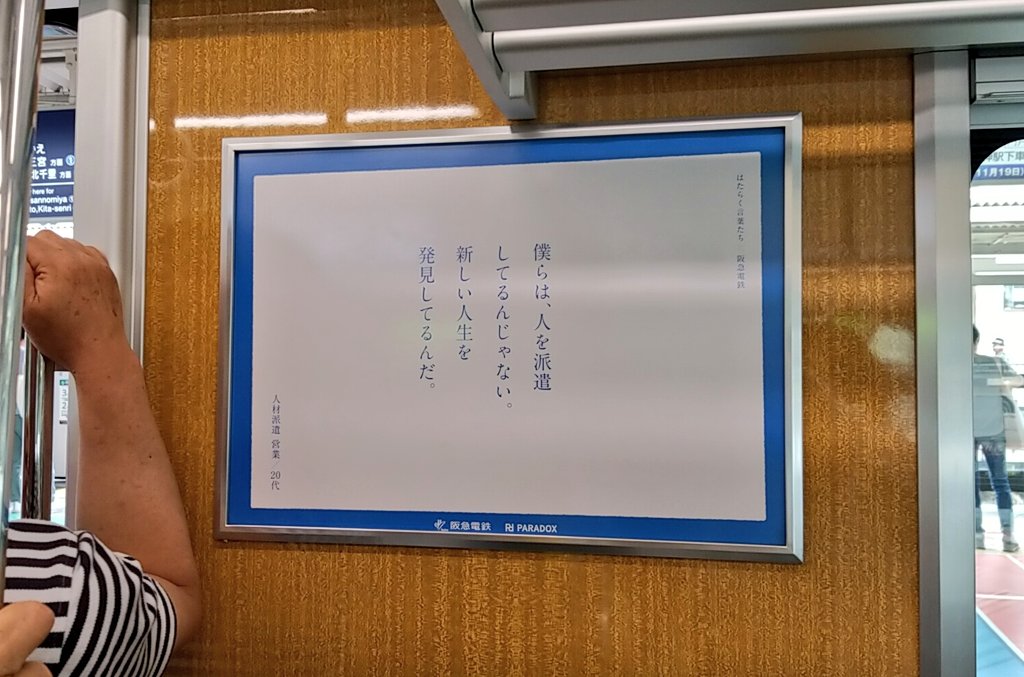 はたらく言葉たち 阪急電鉄
僕らは、人を派遣
してるんじゃない。
新しい人生を
発見してるんだ。
人材派遣 営業 20代
阪急電鉄 PARADOX
三宮 方面
北千里 方面
here for
sannomiya
Kita-senri
駅下車
11月19日